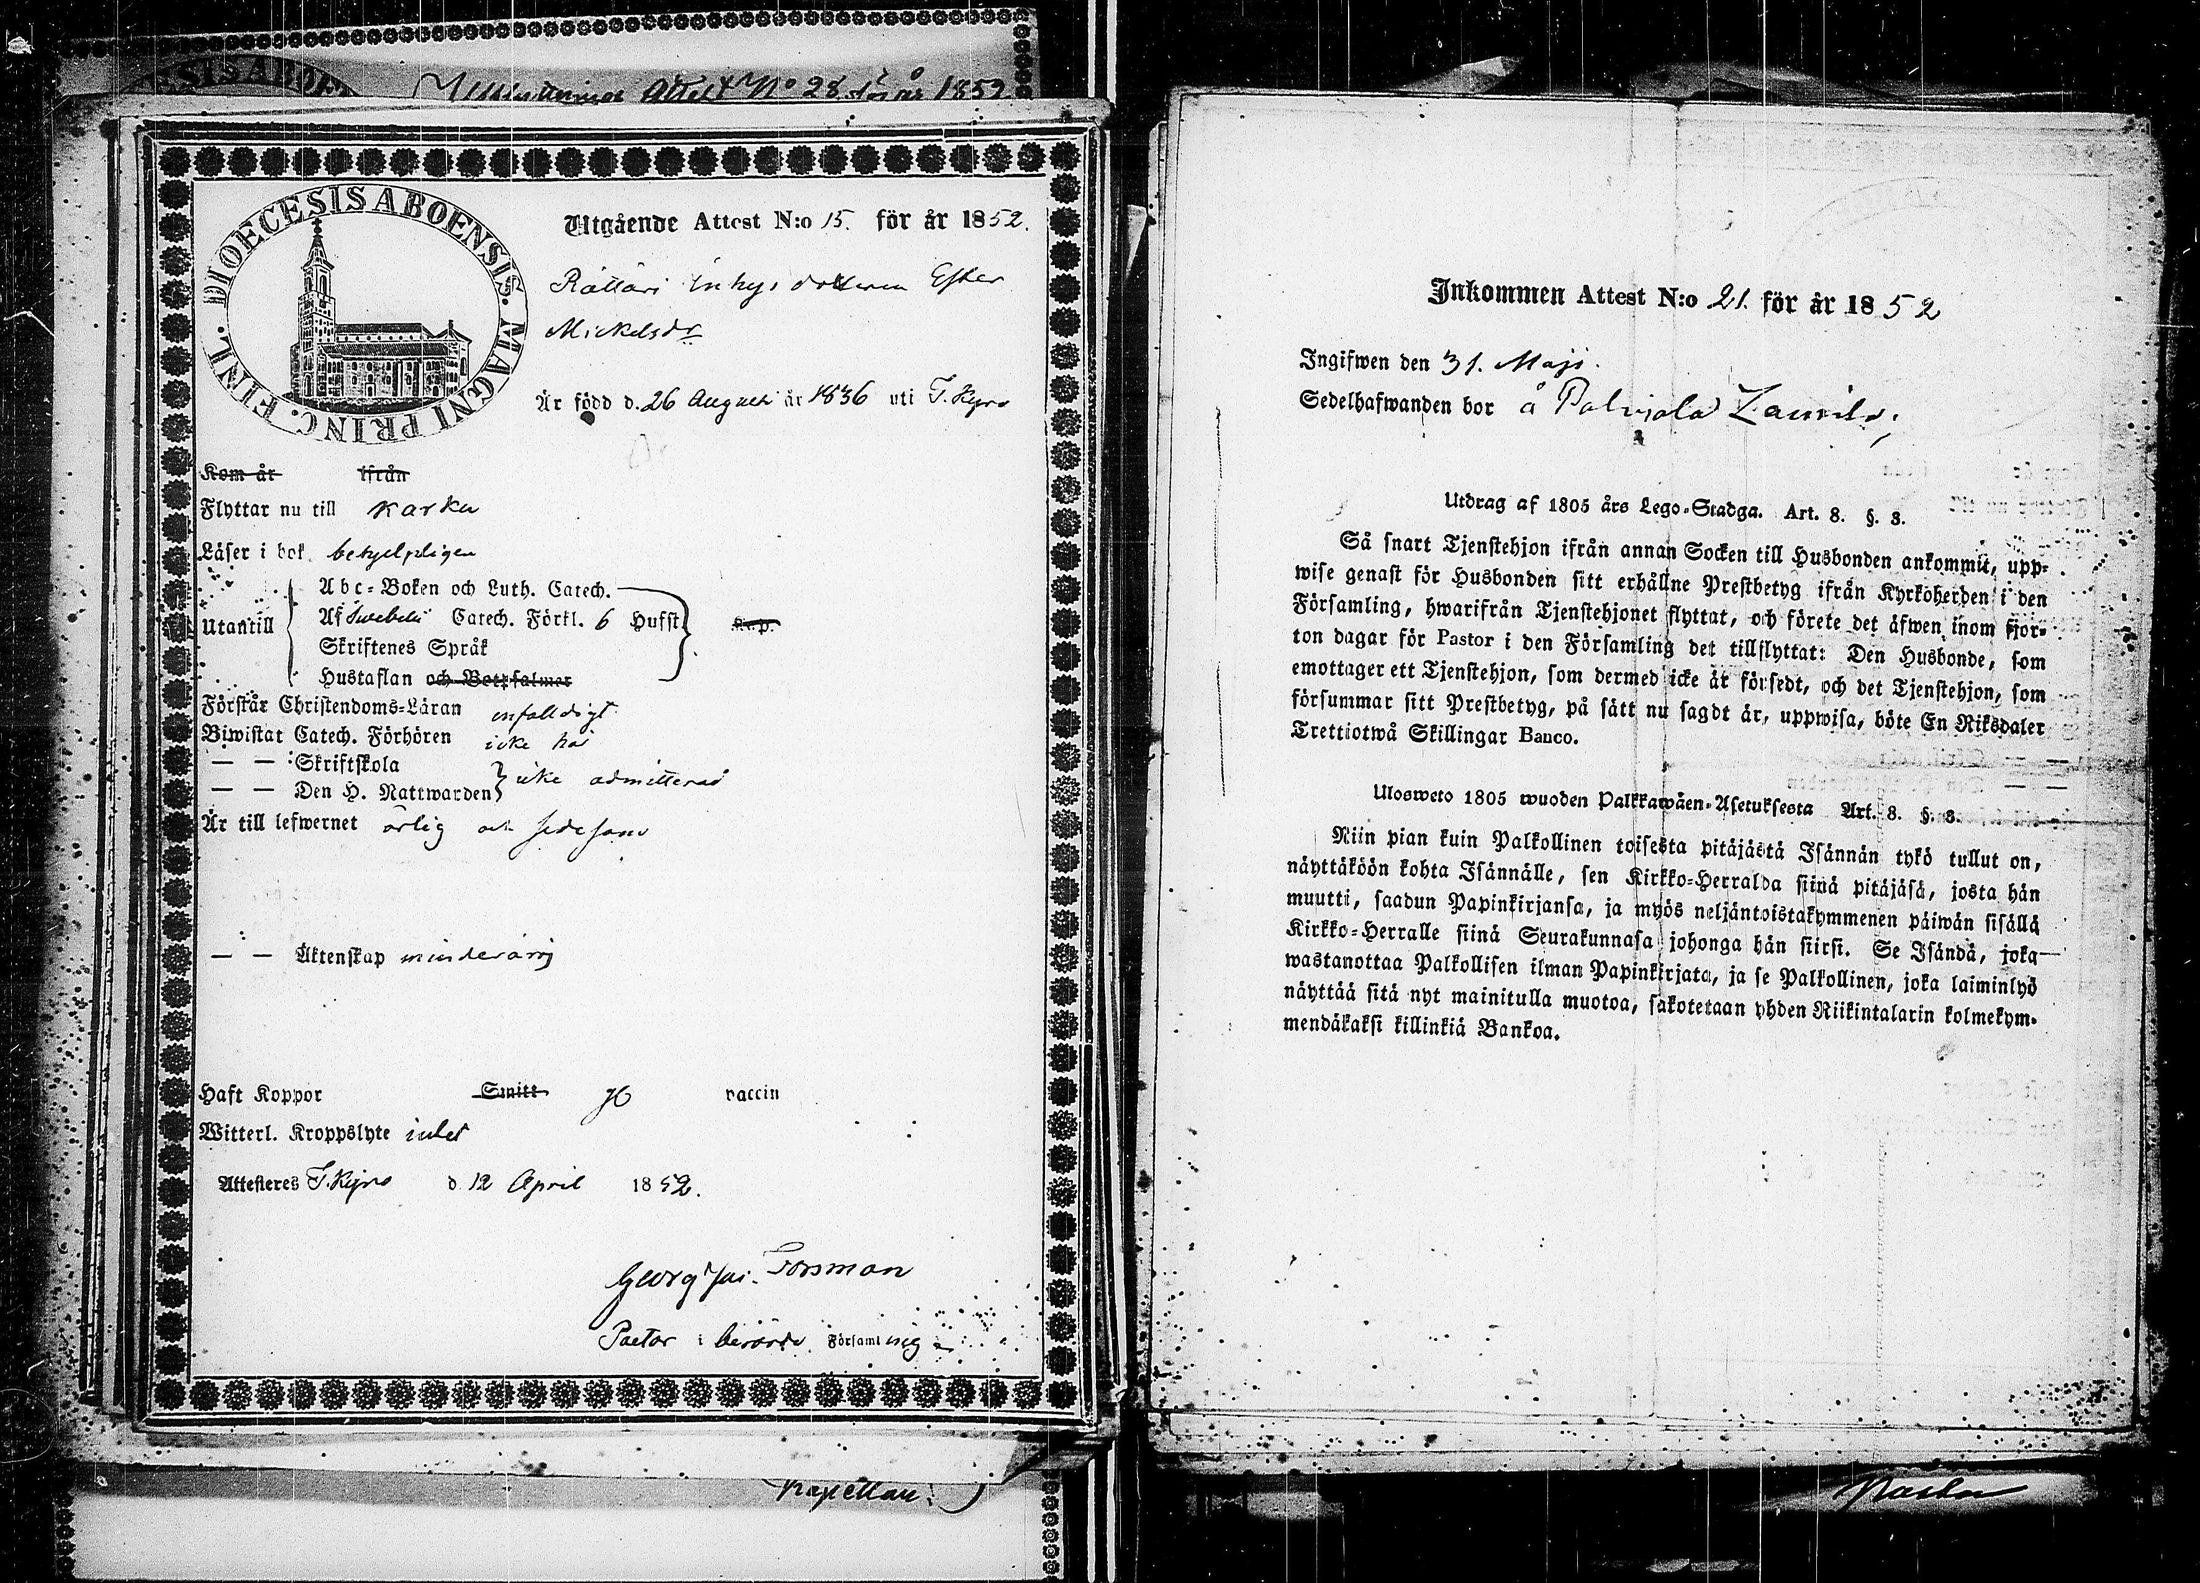 Attest No 28 för år 1852
DIOECESIS ABOENSIS. MAGNI PRINC. FINL.
Utgående Attest N:o 15. för år 1852.
Rättäri inhys dotteren Ester
Mickelsdr
Är född d. 26 Augusti år 1836 uti T. Kyro
Kom år ifrån
Flyttar nu till Karku
Läser i bok behjelpligen
Utantill
Abc-Boken och Luth. Catech.
Af Swebelii Catech. Förkl. 6 Hufst. Kap.
Skriftenes Språk
Hustaflan och Botpsalmer
Förstår Christendoms-Läran enfaldigt
Biwistat Catech. Förhören icke här
— — Skriftskola
— — Den H. Nattwarden icke admitterad
Är till lefwernet ärlig och sedesam
— — Äktenskap minderårig
Haft Koppor Smitt vaccin
Witterl. Kroppslyte intet
Attesteres T. Kyro d. 12 April 1852.
Georg Jac. Forsman
Pastor i berörde Församling
Kapellan.
Inkommen Attest N:o 21. för år 1852
Ingifwen den 31. Maji.
Sedelhafwanden bor å
Utdrag af 1805 års Lego-Stadga. Art. 8. §. 3.
Så snart Tjenstehjon ifrån annan Socken till Husbonden ankommit, upp-
wise genast för Husbonden sitt erhållne Prestbetyg ifrån Kyrkoherden i den
Församling, hwarifrån Tjenstehjonet flyttat, och förete det äfwen inom fjor-
ton dagar för Pastor i den Församling det tillflyttat: Den Husbonde, som
emottager ett Tjenstehjon, som dermed icke är försedt, och det Tjenstehjon, som
försummar sitt Prestbetyg, på sätt nu sagdt är, uppwisa, böte En Riksdaler
Trettiotwå Skillingar Banco.
Ulosweto 1805 wuoden Palkkawäen-Asetuksesta Art. 8. §. 3.
Niin pian kuin Palkollinen toisesta pitäjästä Isännän tykö tullut on,
näyttäköön kohta Isännälle, sen Kirkko-Herralda siinä pitäjäsä, josta hän
muutti, saadun Papinkirjansa, ja myös neljäntoistakymmenen päiwän sisällä
Kirkko-Herralle siinä Seurakunnasa johonga hän siirsi. Se Isändä, joka
wastanottaa Palkollisen ilman Papinkirjata, ja se Palkollinen, joka laiminlyö
näyttää sitä nyt mainitulla muotoa, sakotetaan yhden Riikintalarin kolmekym-
mendäkaksi killinkiä Bankoa.
Pastor